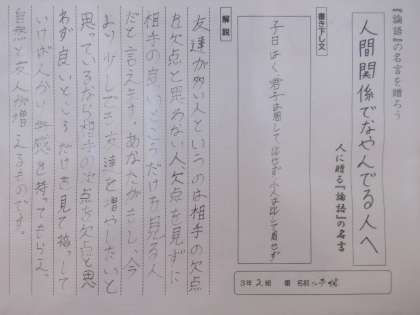 『論語』の名言を贈ろう
人間関係でなやんでる人へ
人に贈る『論語』の名言
3年 2組 番 名前
書き下し文
子曰はく、君子は周して比せず、小人は比して周せず
解説
友達が多い人というのは相手の欠点
を欠点と思わない人、欠点を見ずに
相手の良いところだけを見る人
だと言えます。あなたがもし、今
より少しでも友達を増やしたいと
思っているなら相手の欠点を欠点と思
わず良いところだけを見て接して
いけば人がい 感を持ってもらえ、
自然と友人が増えるものです。